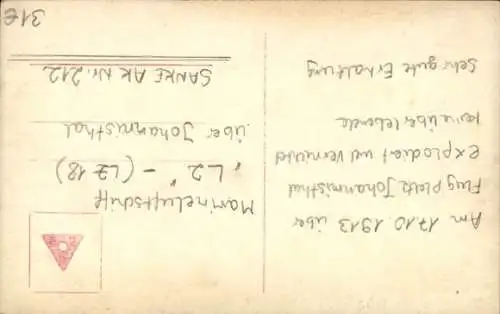 Am 17.10.1913 über
Flugplatz Johannisthal
explodiert und vernichtet
keine überlebende
Sehr gute Erhaltung
Marineluftschiff
"L2" - (LZ 18)
über Johannisthal
SANKE AK Nr. 212
31€